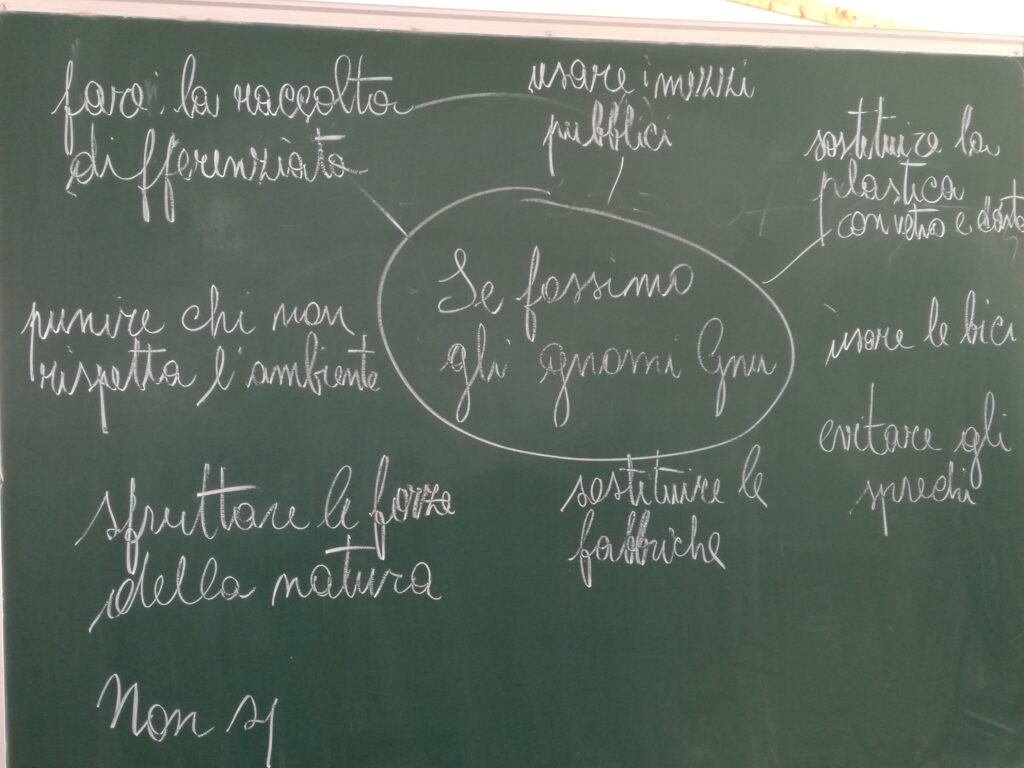 fare la raccolta
differenziata
usare i mezzi
pubblici
sostituire la
plastica
con vetro e
Se fossimo
gli gnomi Gnu
punire chi non
rispetta l'ambiente
usare le bici
evitare gli
sprechi
sfruttare le forze
della natura
sostituire le
fabbriche
Non